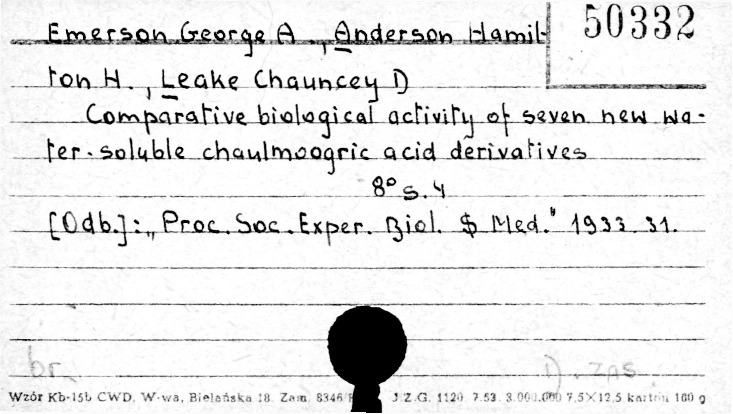 50332
Emerson George A., Anderson Hamil-
ton H., Leake Chauncey D
Comparative biological activity of seven new wa-
ter-soluble chaulmoogric acid derivatives
8° s. 4
[Odb.]: „Proc. Soc. Exper. Biol. $ Med." 1933. 31.
br. D. ZAS.
Wzór Kb-15b CWD, W-wa, Bielańska 18. Zam. 8346 J.Z.G. 1120 7.53. 3.000.000 7,5×12,5 karton 160 g